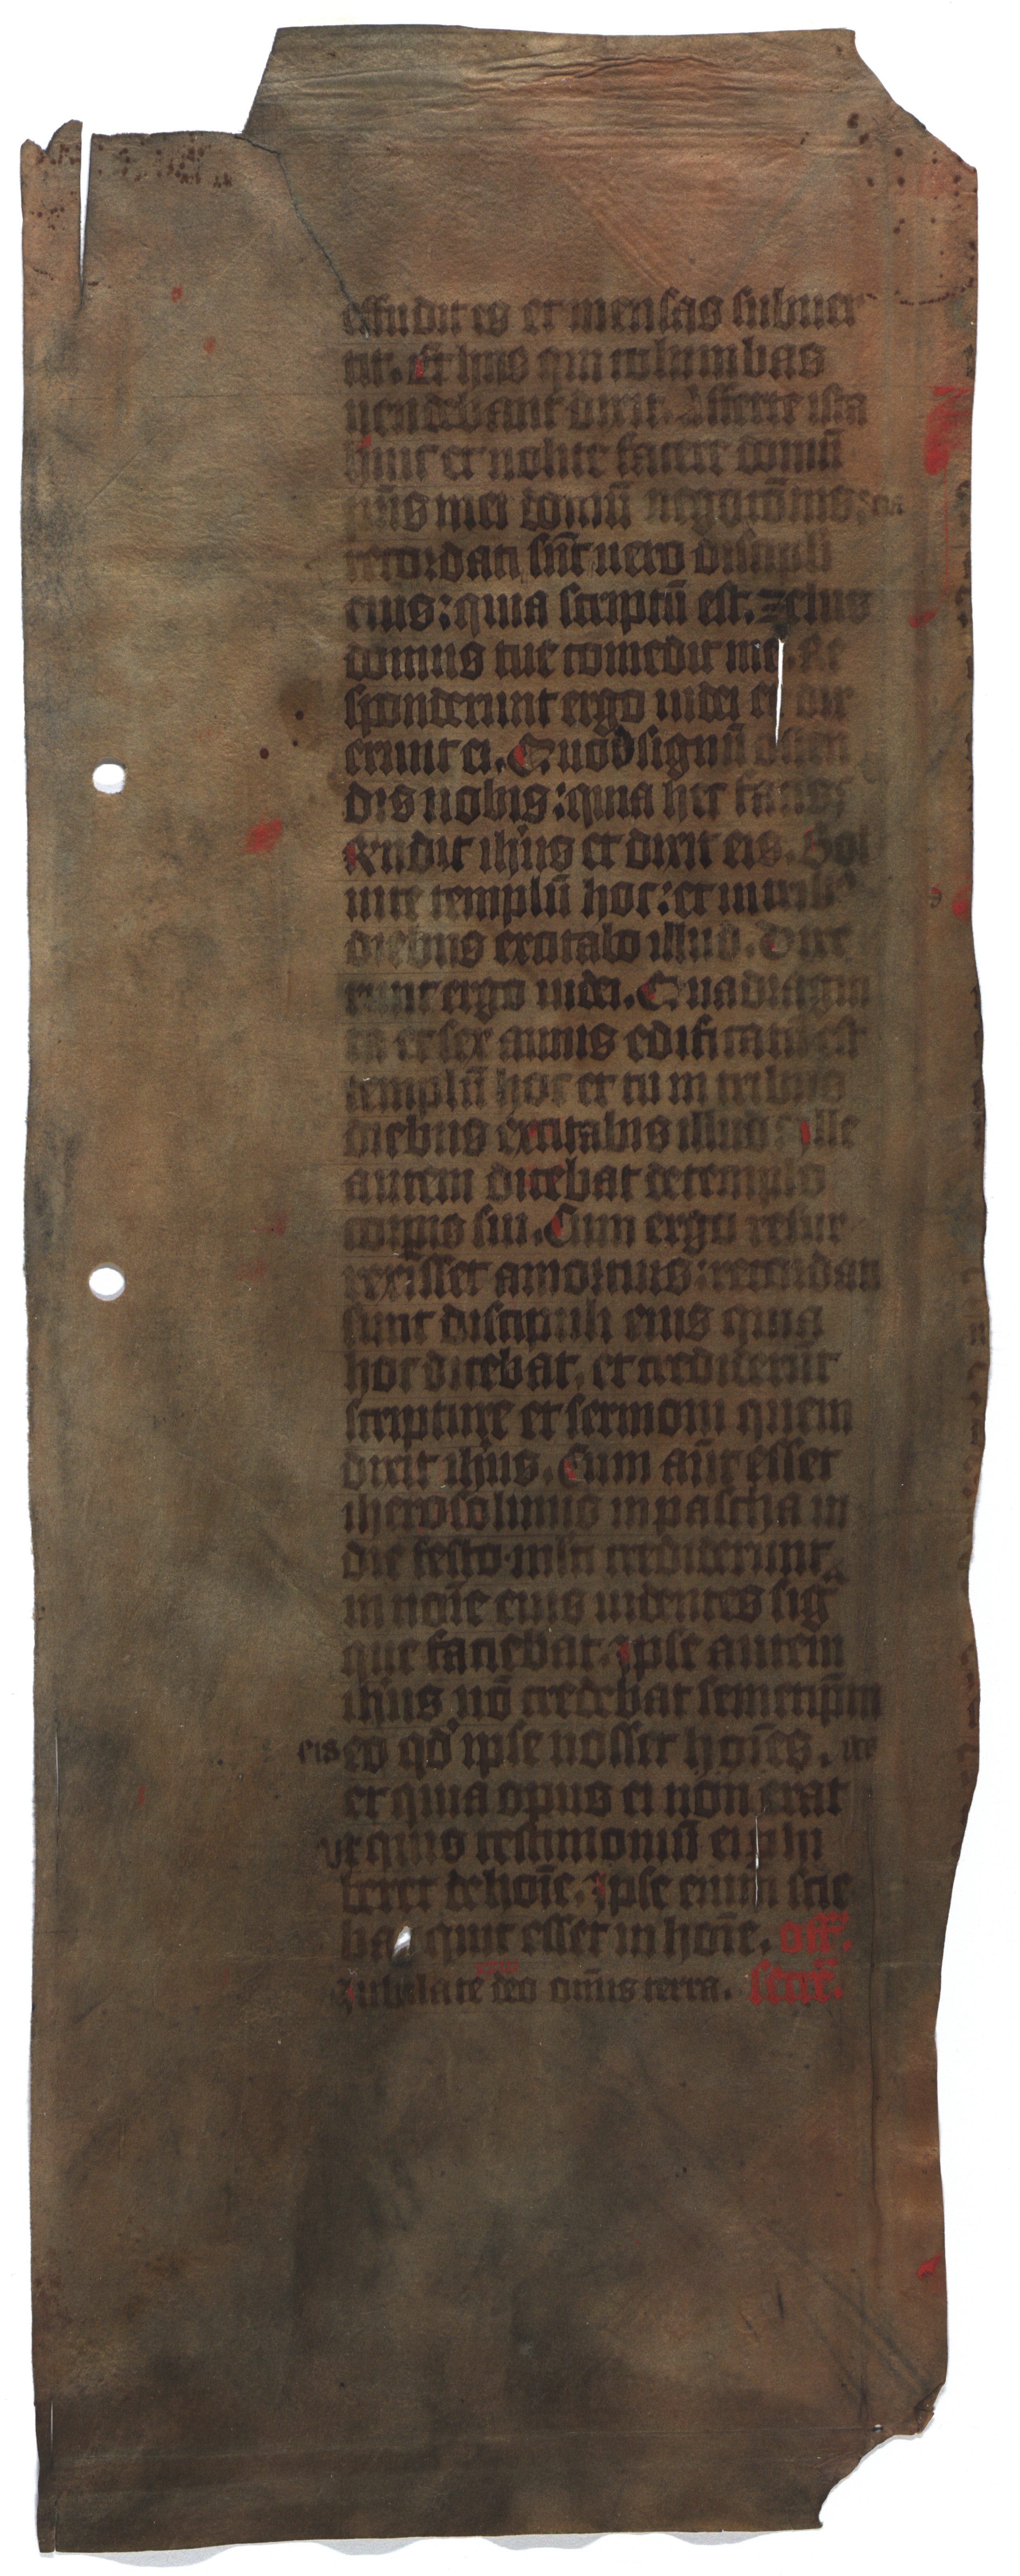 effudit es et mensas subuer
tit. Et hiis qui columbas
uendebant dixit. Afferte ista
hinc et nolite facere domū
pr̄is mei domū negociōnis.
recordati sūt uero discipuli
eius: quia scriptū est. zelus
domus tue comedit me. Re
sponderunt ergo iudei et dix
erunt ei. Quod signū osten
dis nobis: quia hec facis:
Rn̄dit ihūs et dixit eis. Sol
uite templū hoc: et in tribꝰ
diebus excitabo illud. Dixe
runt ergo iudei. Quadragin
ta et sex annis edificatū est
templū hoc et tu in tribus
diebus excitabis illud? Ille
autem dicebat de templo
corpīs sui. Cum ergo resur
rexisset a mortuis: recordati
sunt discipuli eius quia
hoc dicebat. et crediderūt
scripture et sermoni quem
dixit ihūs. Cum aūt esset
iherosolimis in pascha in
die festo multi crediderunt
in noīe eius uidentes sigᵃ
que faciebat. Ipse autem
ihūs nō credebat semetip̄m
eis eo qd̓ ipse nosset hoīes.
et quia opus ei non erat
vt quis testimoniū perhi
beret de hoīe. Ipse enim scie
bat quit esset in hoīe. off.
Iubilate deo om̄is terra. secr̄.